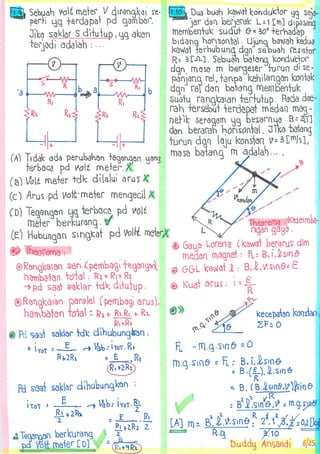 Sebuah volt meter V dirangkai se-
perti yg terdapat pd gambar.
Jika saklar S ditutup, yg akan
terjadi adalah : ...
V
V
S
S
a
b
a
b
R₁
R₁
R₂
R₂
(A) Tidak ada perubahan tegangan yang
terbaca pd volt meter. X
(B) Volt meter tdk dilalui arus X
(C) Arus pd volt meter mengecil X
(D) Tegangan yg terbaca pd volt
meter berkurang. ✓
(E) Hubungan singkat pd volt meter X
Theorema :
Rangkaian seri (pembagi tegangan),
hambatan total : R₂ + R₁
→ pd saat saklar tdk ditutup.
Rangkaian paralel (pembagi arus),
hambatan total :
Pd saat saklar tdk dihubungkan :
Pd saat saklar dihubungkan :
Tegangan berkurang
pd volt meter [D] ✓
Dua buah kawat konduktor yg seja-
jar dan berjarak L = 1 [m] dipasang
membentuk sudut θ = 30° terhadap
bidang horisontal. Ujung bawah kedua
kawat terhubung dgn sebuah resistor
R = 3 [Ω]. Sebuah batang konduktor
dgn massa m bergeser turun di se-
panjang rel, tanpa kehilangan kontak
dgn rel dan batang membentuk
suatu rangkaian tertutup. Pada dae-
rah tersebut terdapat medan mag-
netik seragam yg besarnya B = 2 [T]
dan berarah horisontal. Jika batang
turun dgn laju konstan v = 3 [m/s],
massa batang m adalah... .
B
m
L
R
Theorema :
ngan gaya.
Gaya Lorenz (kawat berarus dlm
medan magnet : F_L = B.i.l sinθ
GGL kawat l : B.l.v sinθ = ε
Kuat arus : i = ε/R
kecepatan konstan,
ΣF = 0
F_L - m.g.sinθ = 0
m.g sinθ = F_L : B.i.l sinθ
Duddy Arisandi